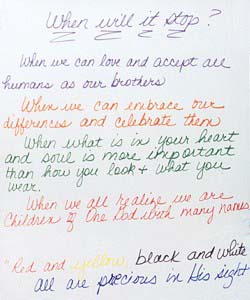 When will it stop?
When we can love and accept all
humans as our brothers
When we can embrace our
differences and celebrate them
When what is in your heart
and soul is more important
than how you look + what you
wear.
When we all realize we are
Children of One God with many names
"Red and yellow, black and white
all are precious in His sight